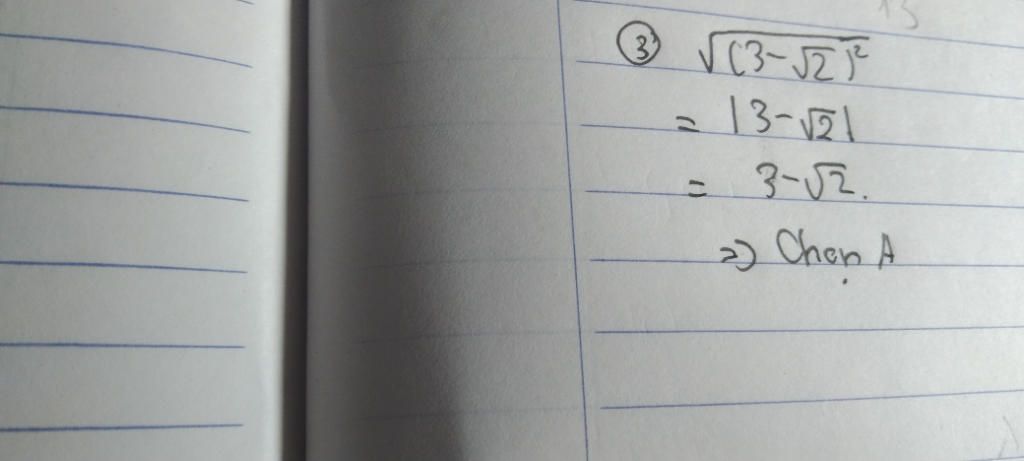 ③ √(3-√2)²
= |3-√2|
= 3-√2.
=> Chọn A